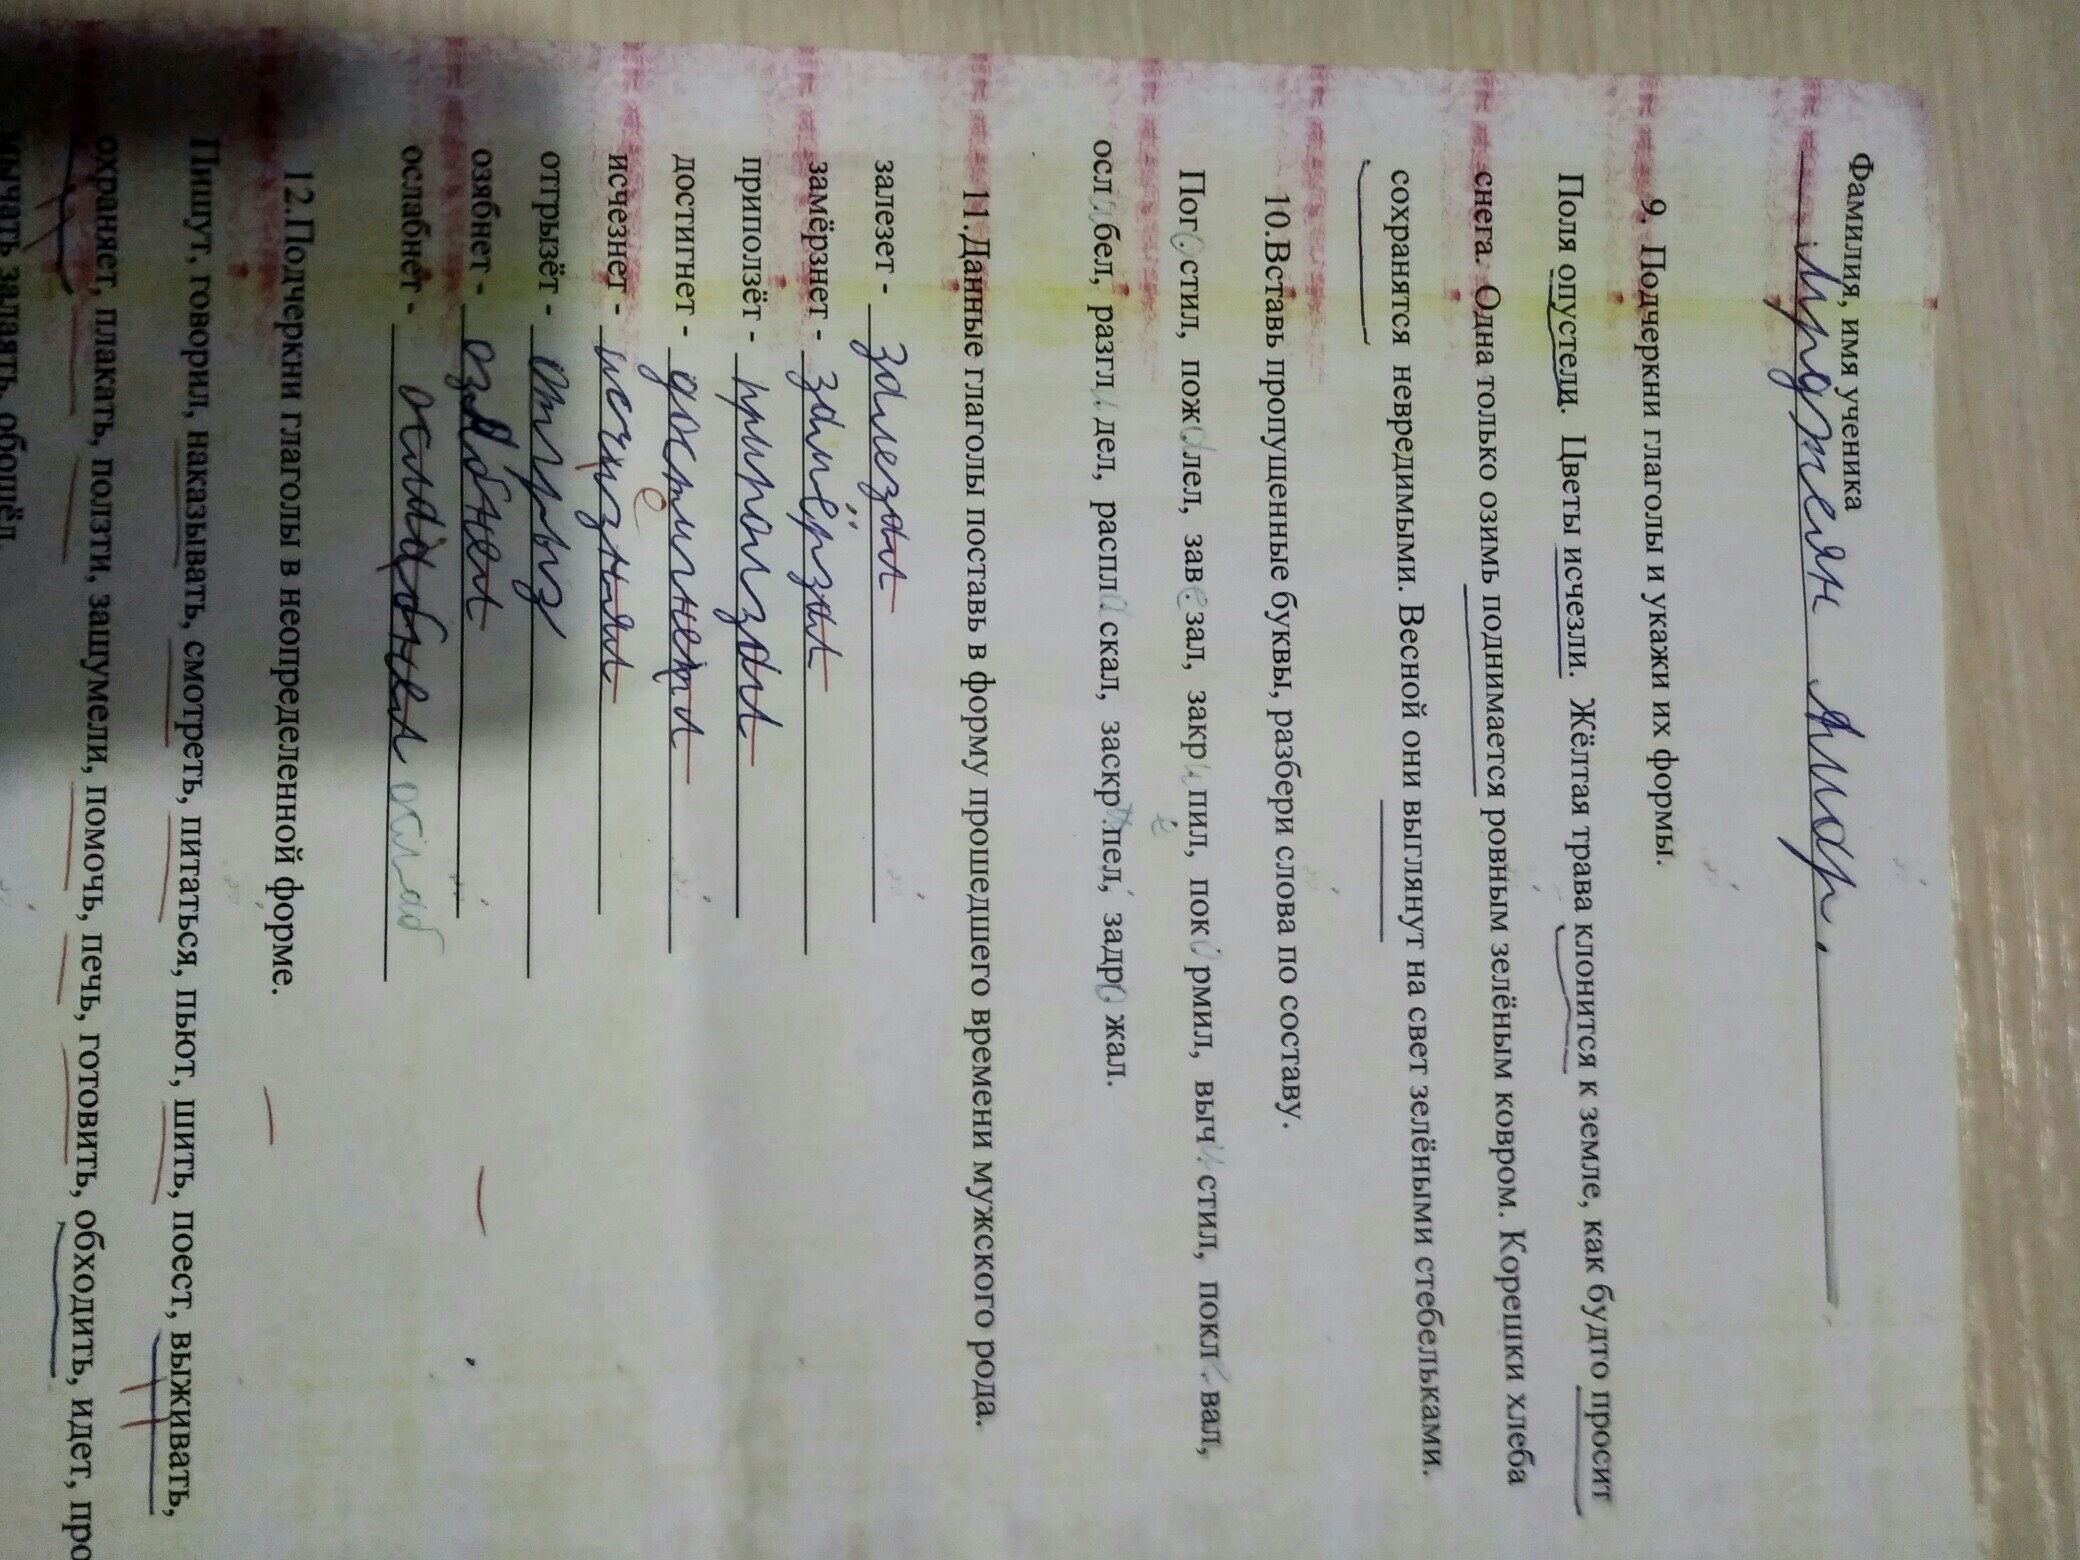 Фамилия, имя ученика
Мротеян Амар.
9. Подчеркни глаголы и укажи их формы.
Поля опустели. Цветы исчезли. Жёлтая трава клонится к земле, как будто просит
снега. Одна только озимь поднимается ровным зелёным ковром. Корешки хлеба
сохранятся невредимыми. Весной они выглянут на свет зелёными стебельками.
10.Вставь пропущенные буквы, разбери слова по составу.
Погостил, пожалел, завезал, закрипил, покормил, вычистил, поклевал,
ослабел, разглидел, распласкал, заскрпел, задрожал.
11.Данные глаголы поставь в форму прошедшего времени мужского рода.
залезет - залезал
замёрзнет - замёрзал
приползёт - приползал
достигнет - достигнел
исчезнет - исчизнял е
отгрызёт - отгрыз
озябнет - озябнел
ослабнет - ослабнел ослаб
12.Подчеркни глаголы в неопределенной форме.
Пишут, говорил, наказывать, смотреть, питаться, пьют, шить, поест, выживать,
охраняет, плакать, ползти, зашумели, помочь, печь, готовить, обходить, идет, про
мычать, залаять, обошёл.